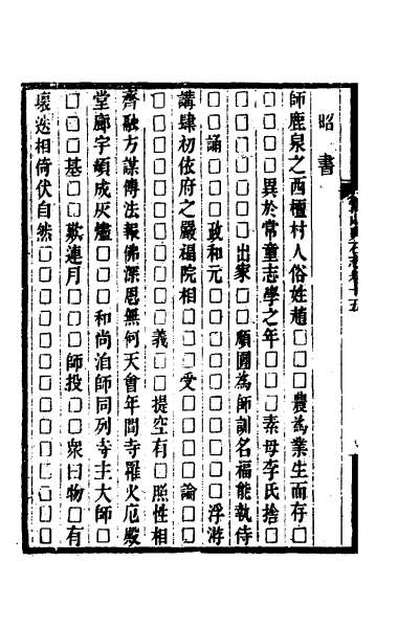 昭書
師鹿泉之西櫃村人俗姓趙□□□農為業生而存□
□□□□異於常童志學之年□□□素母李氏捨□
□□□□□□出家□□願圓為師訓名福能執侍
□□誦□□□政和元□□□□□□□□□浮游
講肆初依府之嚴福院相□□□受□□□□論□□
□□□□□□□□□義□□提空有□□照性相
齊融方謀傳法報佛深恩無何天會年間寺羅火厄殿
堂廊宇頓成灰燼□□□和尚洎師同列寺主大師□
□□□基□□歎連月□□□師投□□衆曰物□有
壞迭相倚伏自然□□□□□□□□□□□□□□